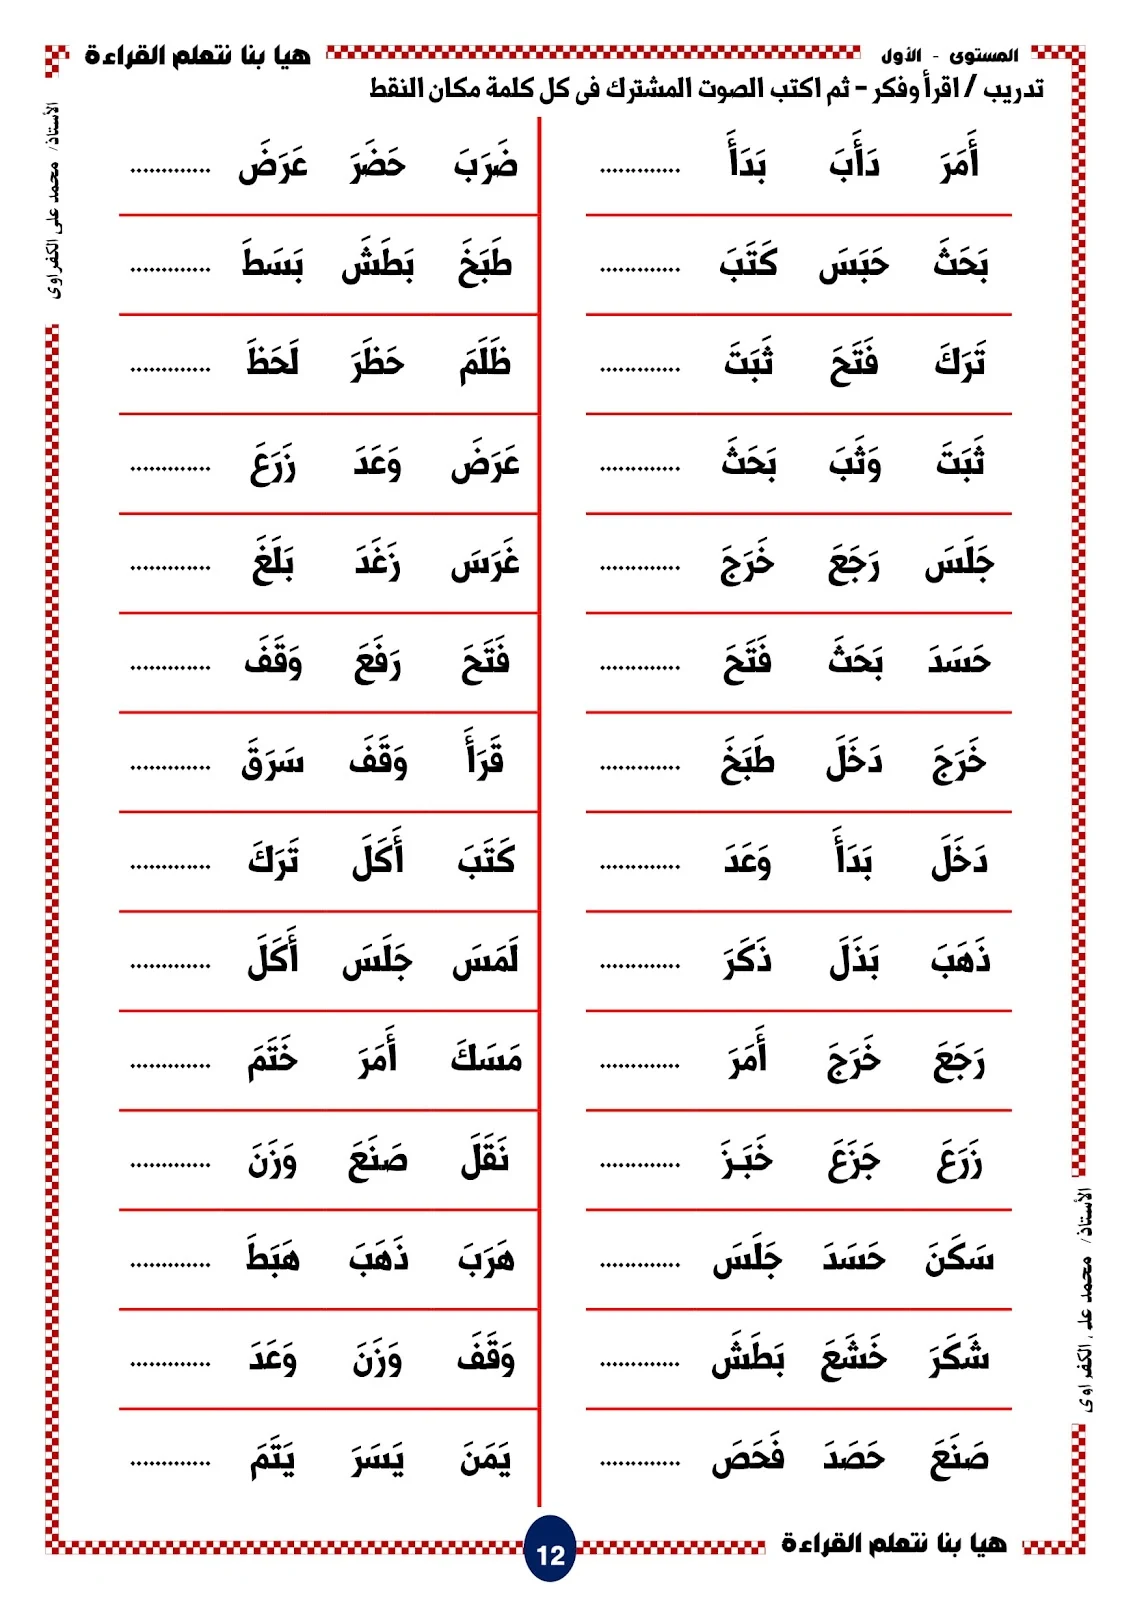 المستوى - الأول
هيا بنا نتعلم القراءة
تدريب / اقرأ وفكر – ثم اكتب الصوت المشترك فى كل كلمة مكان النقط
أَمَرَ دَأَبَ بَدَأَ .............
بَحَثَ حَبَسَ كَتَبَ .............
تَرَكَ فَتَحَ ثَبَتَ .............
ثَبَتَ وَثَبَ بَحَثَ .............
جَلَسَ رَجَعَ خَرَجَ .............
حَسَدَ بَحَثَ فَتَحَ .............
خَرَجَ دَخَلَ طَبَخَ .............
دَخَلَ بَدَأَ وَعَدَ .............
ذَهَبَ بَذَلَ ذَكَرَ .............
رَجَعَ خَرَجَ أَمَرَ .............
زَرَعَ جَزَعَ خَبَـزَ .............
سَكَنَ حَسَدَ جَلَسَ .............
شَكَرَ خَشَعَ بَطَشَ .............
صَنَعَ حَصَدَ فَحَصَ .............
ضَرَبَ حَضَرَ عَرَضَ .............
طَبَخَ بَطَشَ بَسَطَ .............
ظَلَمَ حَظَرَ لَحَظَ .............
عَرَضَ وَعَدَ زَرَعَ .............
غَرَسَ رَغَدَ بَلَغَ .............
فَتَحَ رَفَعَ وَقَفَ .............
قَرَأَ وَقَفَ سَرَقَ .............
كَتَبَ أَكَلَ تَرَكَ .............
لَمَسَ جَلَسَ أَكَلَ .............
مَسَكَ أَمَرَ خَتَمَ .............
نَقَلَ صَنَعَ وَزَنَ .............
هَرَبَ ذَهَبَ هَبَطَ .............
وَقَفَ وَزَنَ وَعَدَ .............
يَمَنَ يَسَرَ يَتَمَ .............
الأستاذ/ محمد على الكفراوى
الأستاذ/ محمد على الكفراوى
هيا بنا نتعلم القراءة
12